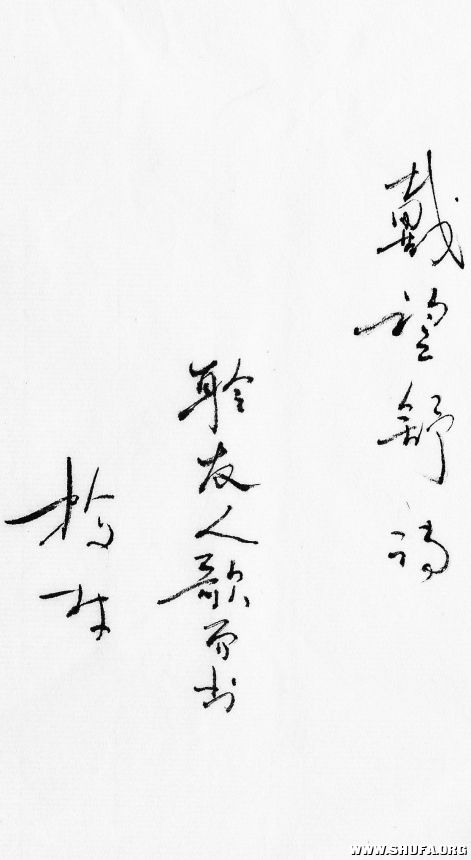 戴望舒诗
聆友人歌而书
WWW.SHUFA.ORG